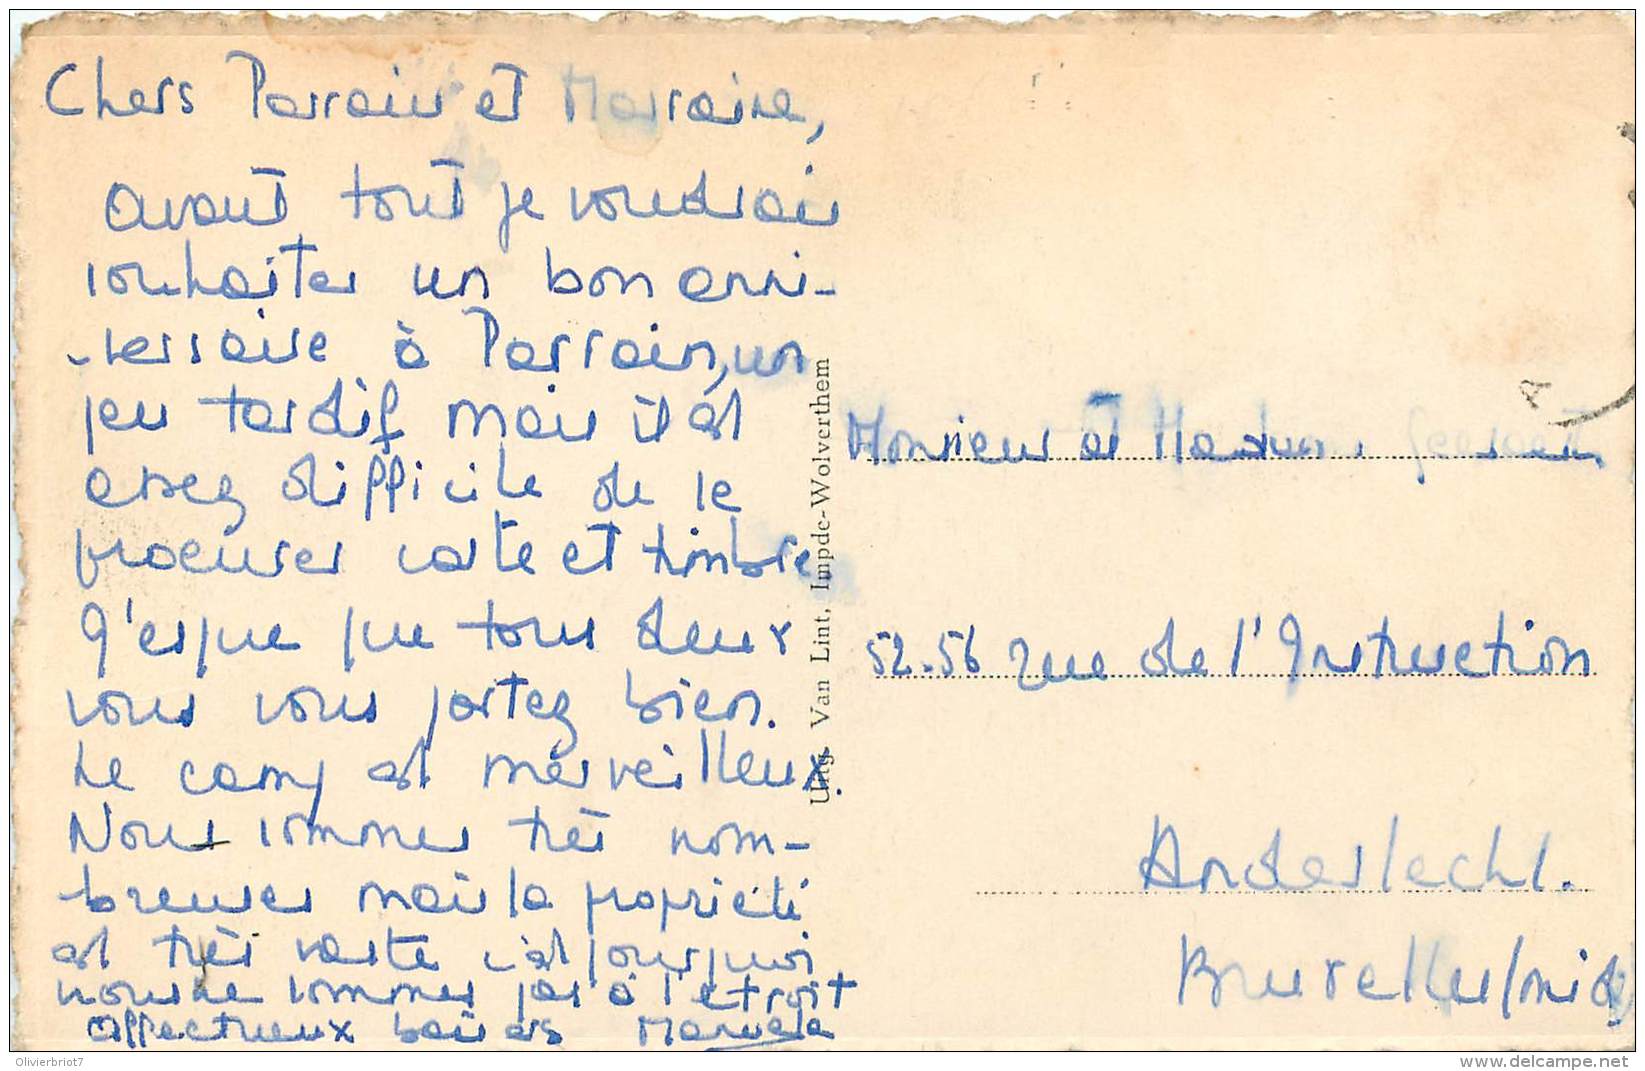 Chers Parrain et Marraine,
avant tout je voudrais
souhaiter un bon anni-
-versaire à Parrain, un
peu tardif mais il est
assez difficile de se
procurer carte et timbre.
J'espère que tous deux
vous vous portez bien.
Le camp est merveilleux.
Nous sommes très nom-
breuses mais la propriété
est très vaste c'est pourquoi
nous ne sommes pas à l'etroit
Affectueux baisers Manuela
Uitg. Van Lint, Impde-Wolverthem
A
Monsieur et Madame
52-56 rue de l'Instruction
Anderlecht.
Bruxelles/midi
Olivierbriot7
www.delcampe.net